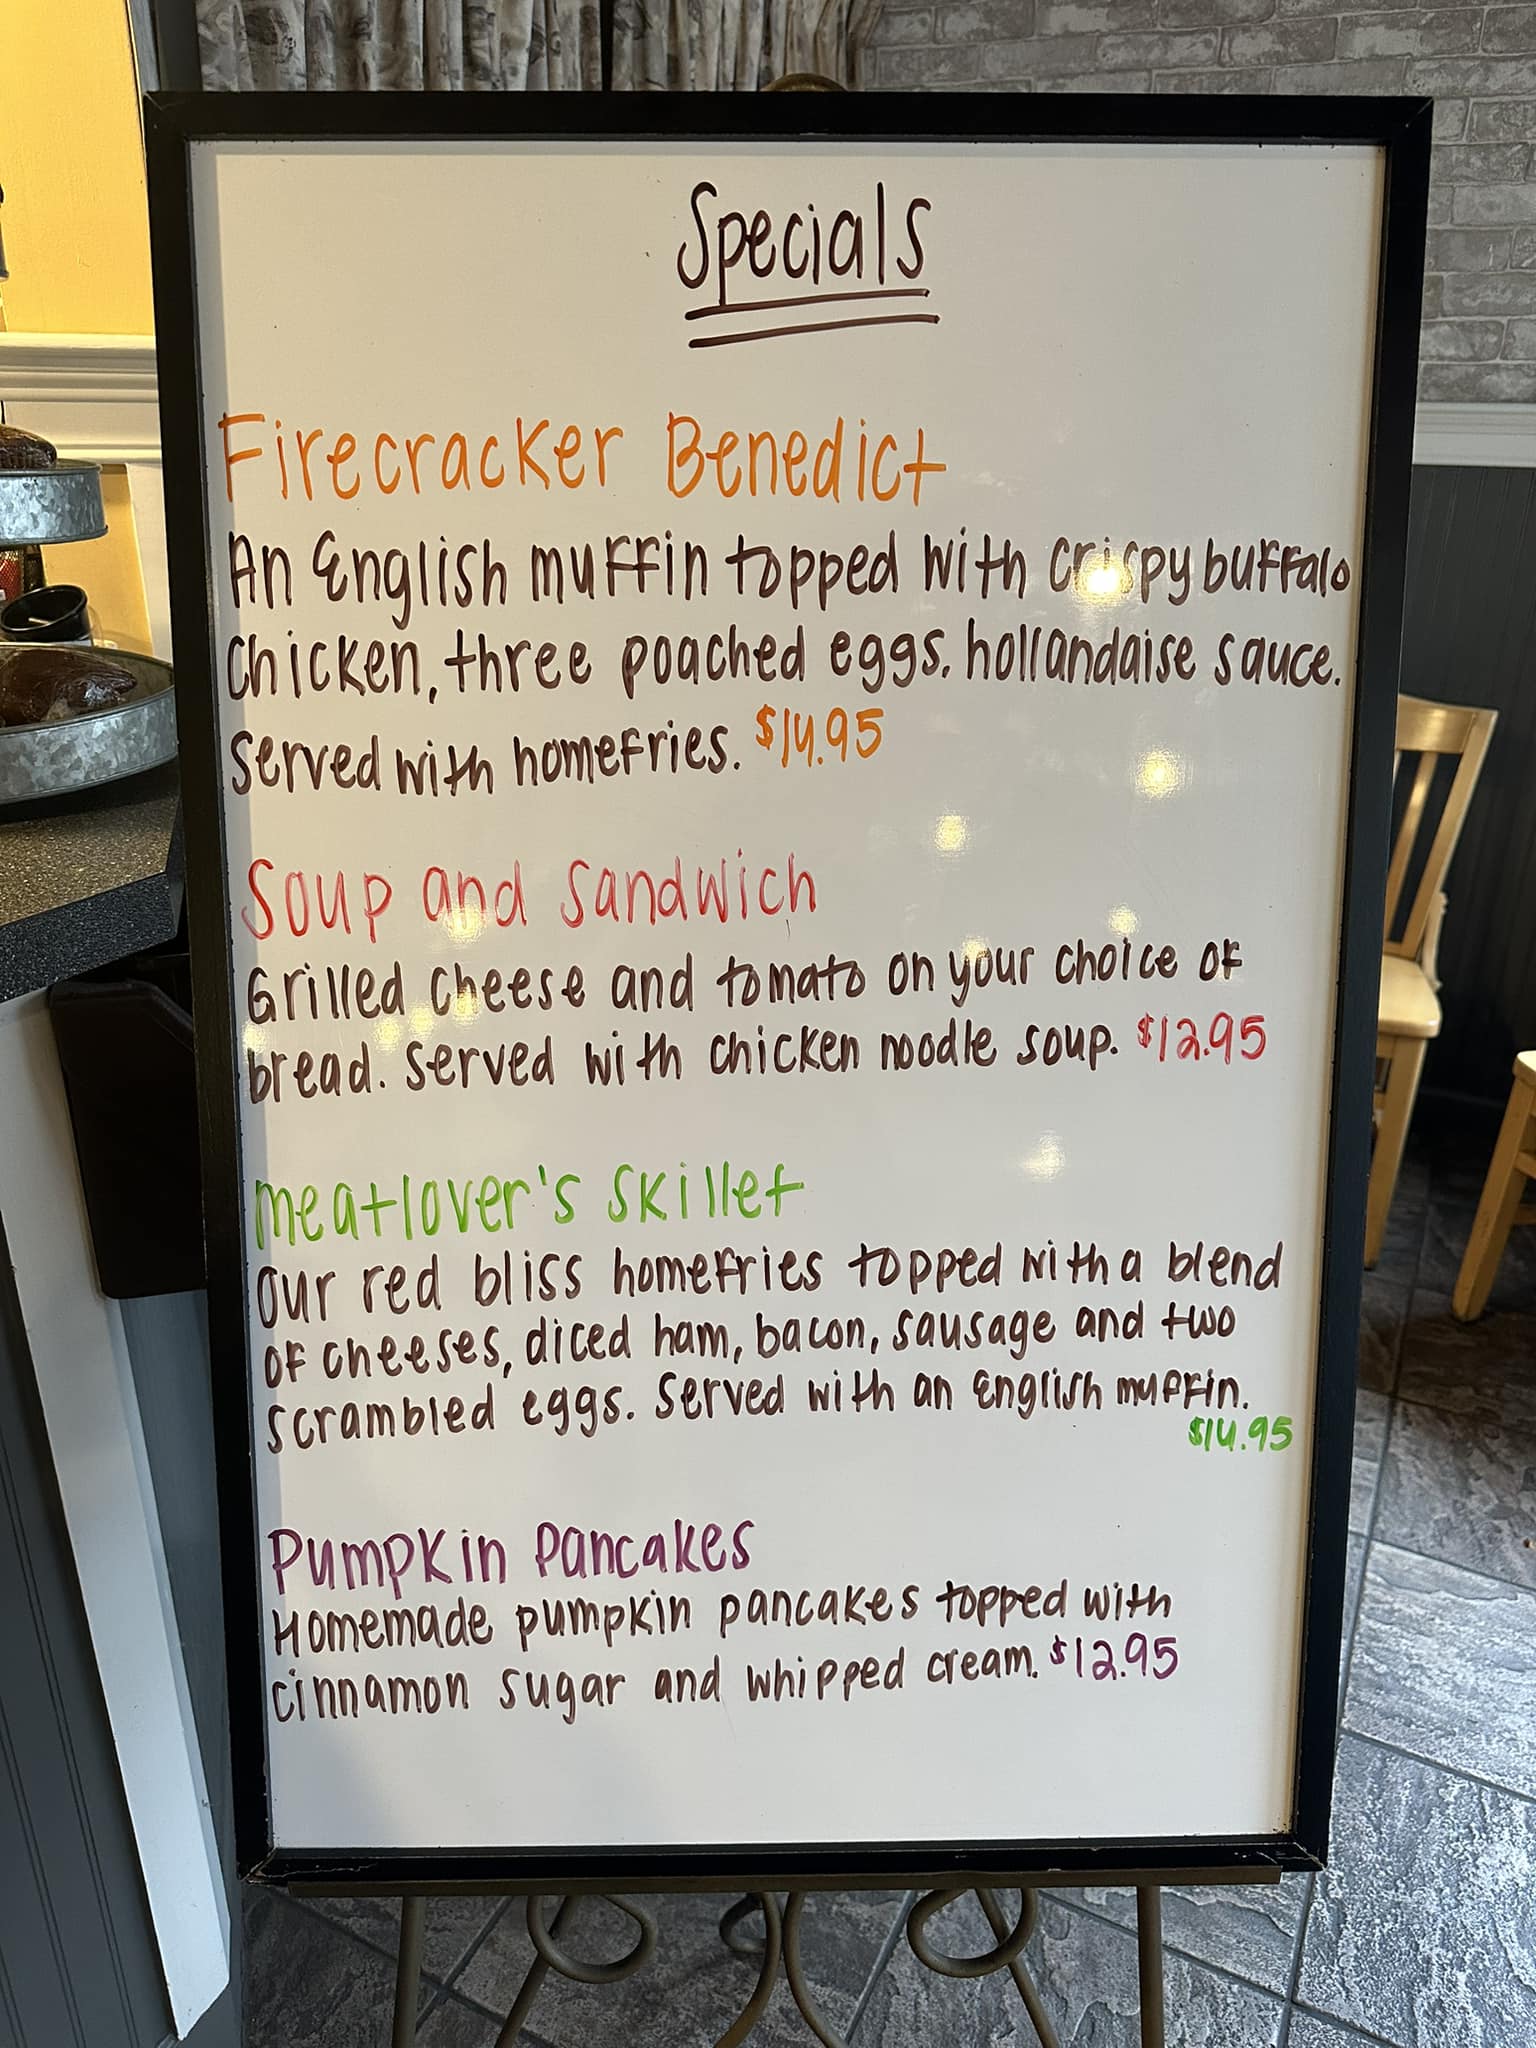 Specials
Firecracker Benedict
An English muffin topped with crispy buffalo
chicken, three poached eggs, hollandaise sauce.
Served with homefries. $14.95
Soup and Sandwich
Grilled cheese and tomato on your choice of
bread. Served with chicken noodle soup. $12.95
Meatlover's Skillet
Our red bliss homefries topped with a blend
of cheeses, diced ham, bacon, sausage and two
scrambled eggs. Served with an English muffin.
$14.95
Pumpkin Pancakes
Homemade pumpkin pancakes topped with
cinnamon sugar and whipped cream. $12.95